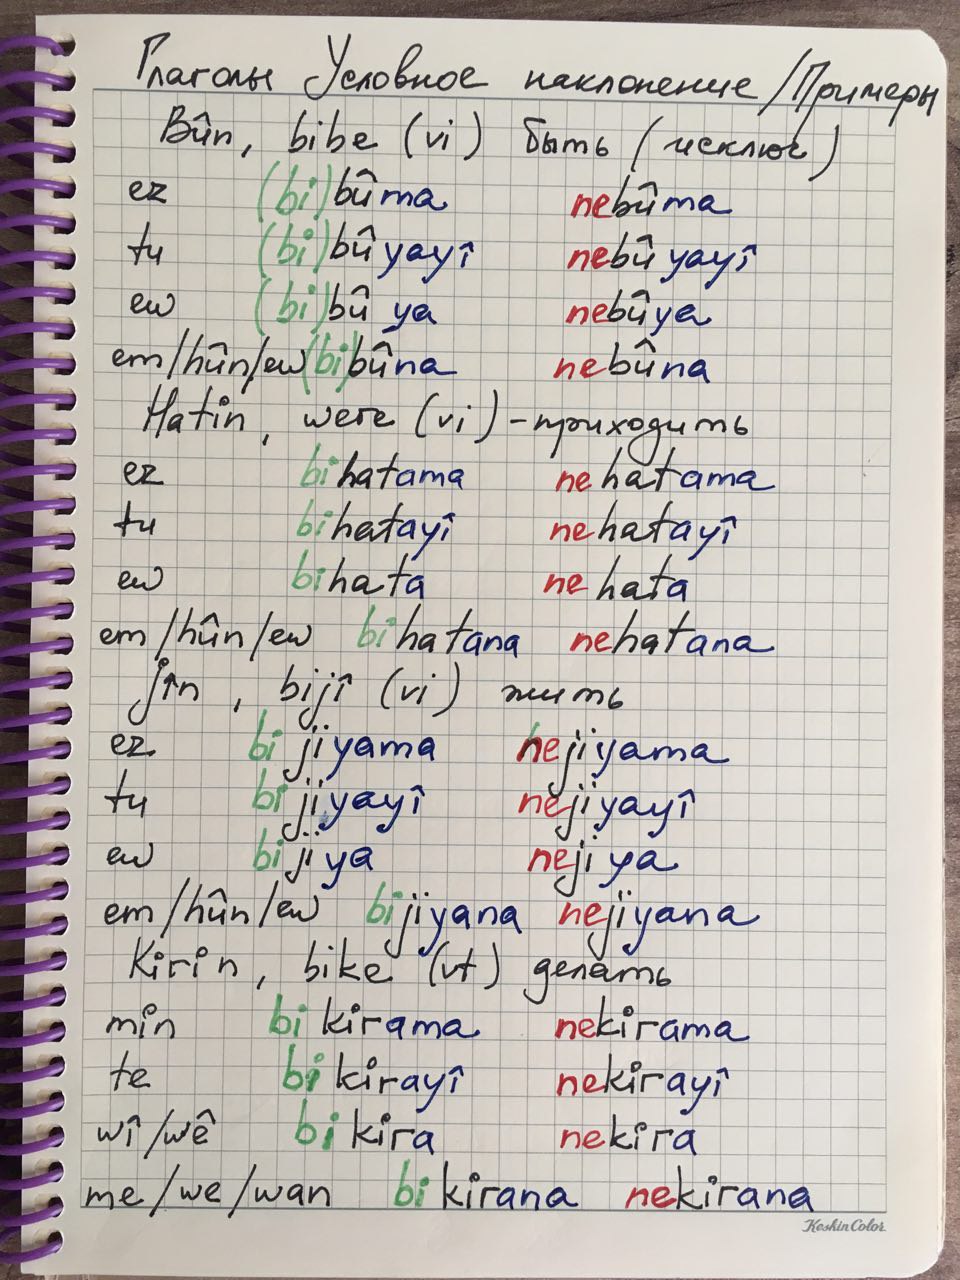 Глаголы Условное наклонение / Примеры
Bûn, bibe (vi) быть (исключ)
ez (bi)bûma nebûma
tu (bi)bûyayî nebûyayî
ew (bi)bûya nebûya
em/hûn/ew (bi)bûna nebûna
Hatin, were (vi) - приходить
ez bihatama nehatama
tu bihatayî nehatayî
ew bihata nehata
em/hûn/ew bihatana nehatana
Jîn, bijî (vi) жить
ez bijiyama nejiyama
tu bijiyayî nejiyayî
ew bijiya nejiya
em/hûn/ew bijiyana nejiyana
Kirin, bike (vt) делать
min bikirama nekirama
te bikirayî nekirayî
wî/wê bikira nekira
me/we/wan bikirana nekirana
KeskinColor